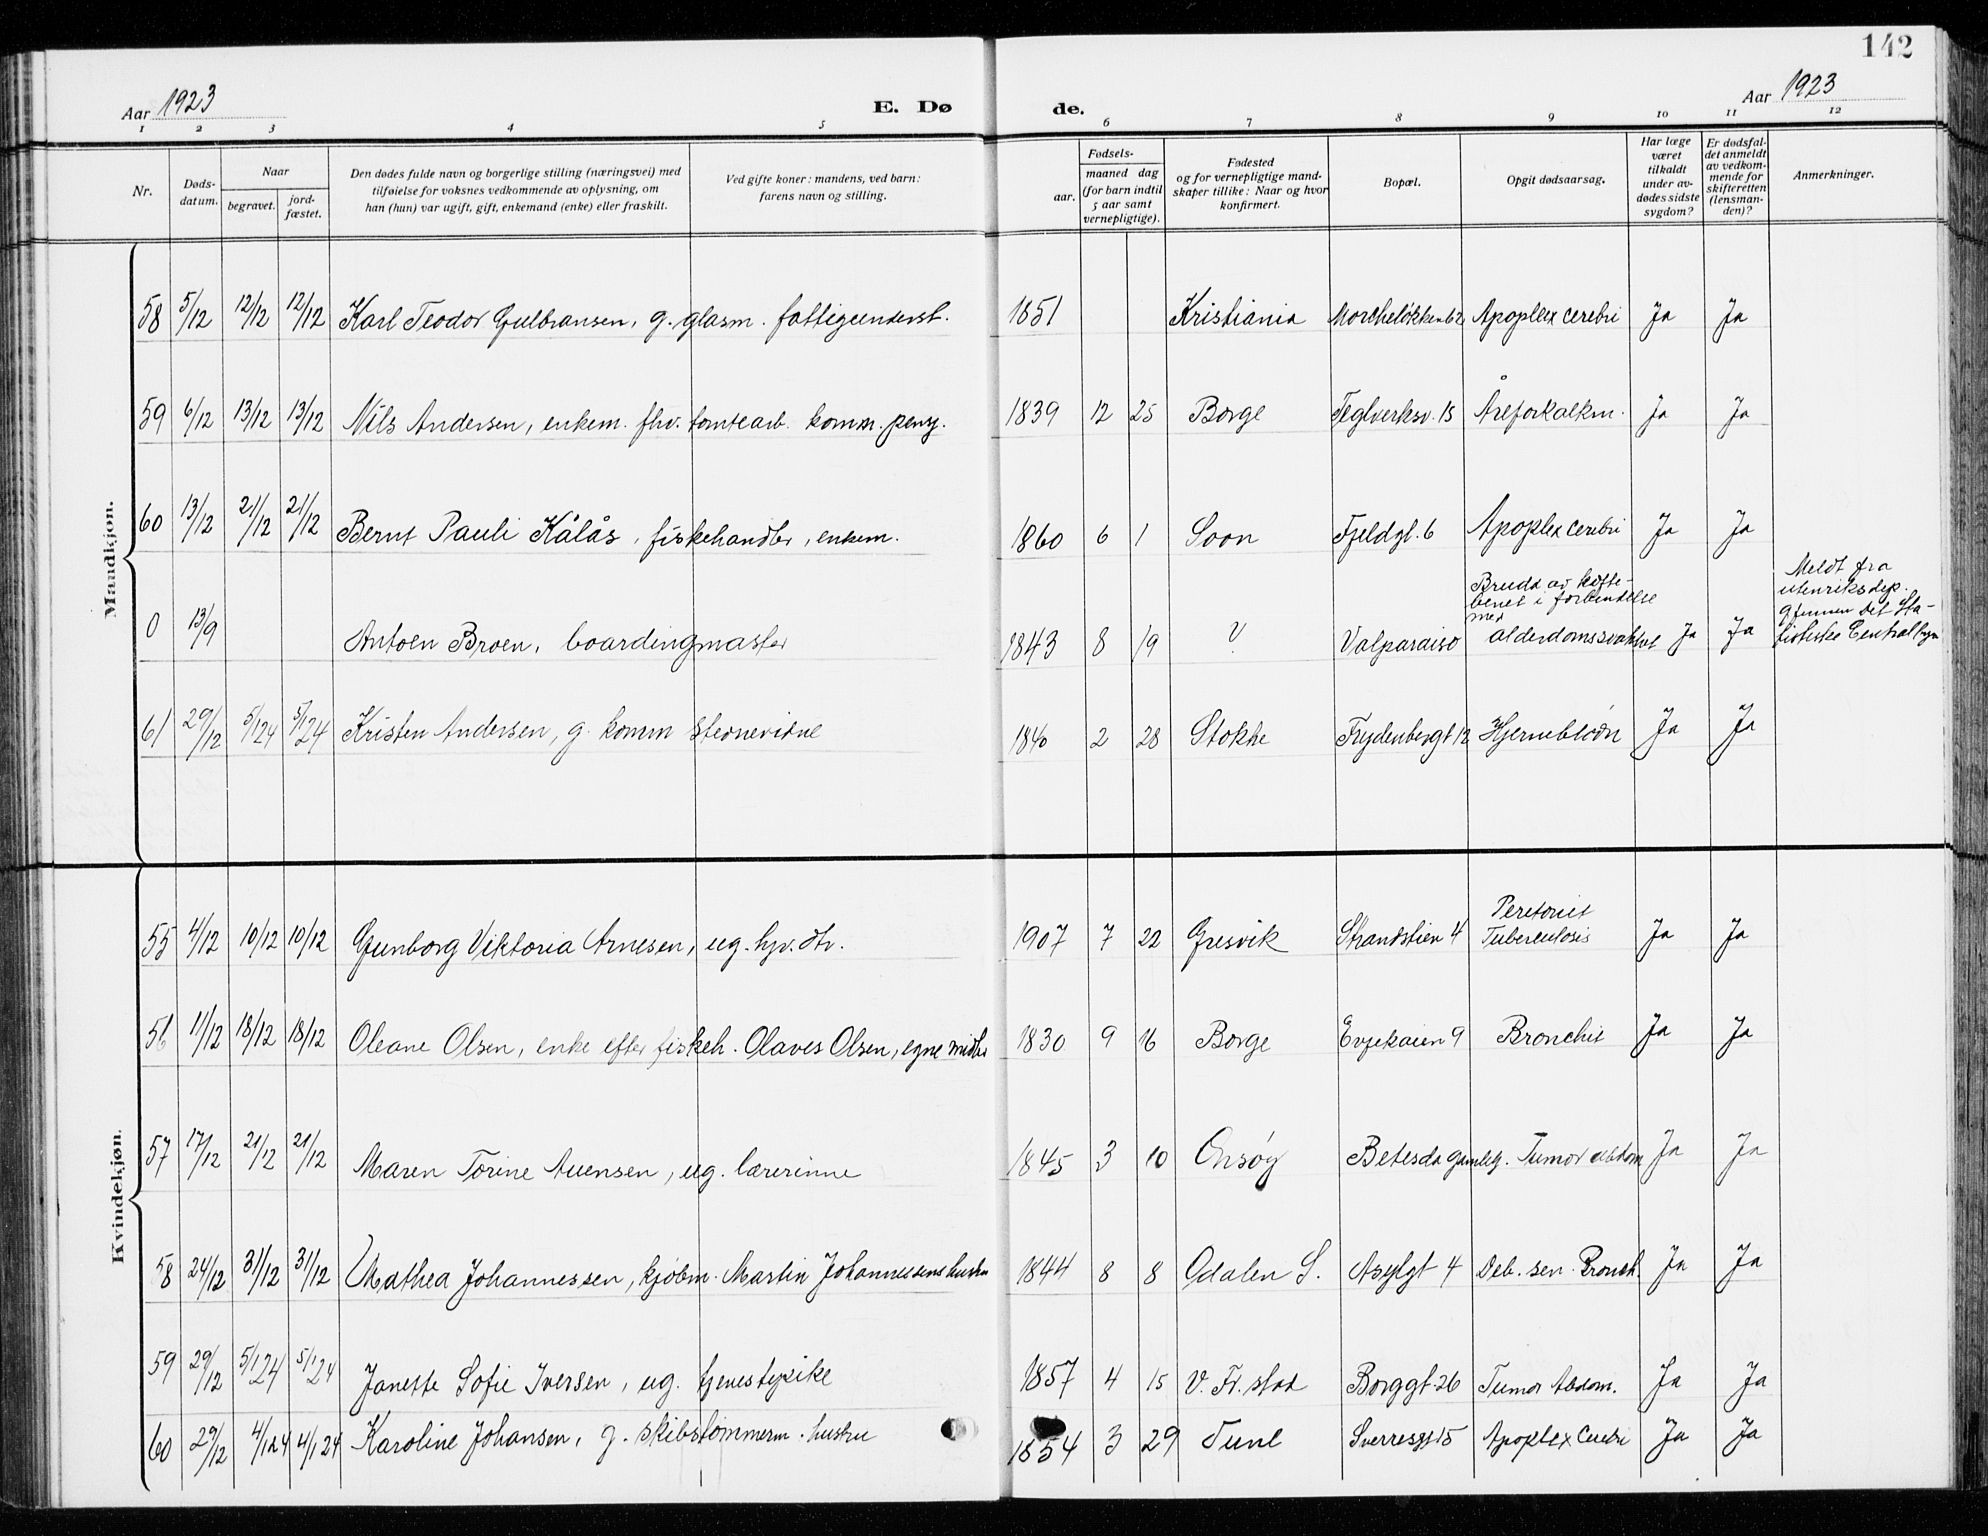 142
Aar 1923 E. Dø de. Aar 1923
1 2 3 4 5 6 7 8 9 10 11 12
Nr.
Døds-
datum.
Naar
begravet.
jord-
fæstet.
Den dødes fulde navn og borgerlige stilling (næringsvei) med
tilføielse for voksnes vedkommende av oplysning, om
han (hun) var ugift, gift, enkemand (enke) eller fraskilt.
Ved gifte koner: mandens, ved barn:
farens navn og stilling.
Fødsels-
aar.
maaned dag
(for barn indtil
5 aar samt
vernepligtige).
Fødested
og for vernepligtige mand-
skaper tillike: Naar og hvor
konfirmert.
Bopæl.
Opgit dødsaarsag.
Har læge
været
tilkaldt
under av-
dødes sidste
sygdom?
Er dødsfal-
det anmeldt
av vedkom-
mende for
skifteretten
(lensman-
den)?
Anmerkninger.
Mandkjøn.
58 5/12 12/12 12/12 Karl Teodor Gulbransen, g. glasm. fattigunderst. 1851 Kristiania Morcheløkken 62 Apoplex cerebri Ja Ja
59 6/12 13/12 13/12 Nils Andersen, enkem. fhv. tomtearb. komm. pensj. 1839 12 25 Borge Teglverksv. 15 Åreforkalkn. Ja Ja
60 13/12 21/12 21/12 Bernt Pauli Kålås, fiskehandler, enkem. 1860 6 1 Soon Fjeldgt. 6 Apoplex cerebri Ja Ja
0 13/9 Antoen Broen, boardingmaster 1843 8 19 ? Valparaiso
Brudd av hofte-
benet i forbindelse
med
alderdomssvakhet Ja Ja
Meldt fra
utenriksdep.
gjennem det Sta-
tistiske Centralbyrå
61 29/12 5/1 24 5/1 24 Kristen Andersen, g. komm stevnevidne 1840 2 28 Stokke Frydenbergt 12 Hjerneblødn Ja Ja
Kvindekjøn.
55 4/12 10/12 10/12 Gunborg Viktoria Arnesen, ug. hjv. dtr. 1907 7 22 Gresvik Strandstien 4
Peretonit
Tuberculosis Ja Ja
56 11/12 18/12 18/12 Oleane Olsen, enke efter fiskeh. Olaves Olsen, egne midler 1830 9 16 Borge Evjekaien 9 Bronchit Ja Ja
57 17/12 21/12 21/12 Maren Torine Auensen, ug. lærerinne 1845 3 10 Onsøy Betesda gamleh. Tumor abdom Ja Ja
58 24/12 31/12 31/12 Mathea Johannessen, kjøbm. Martin Johannessens hustru 1844 8 8 Odalen S. Asylgt 4 Deb. sen. Bronch. Ja Ja
59 29/12 5/1 24 5/1 24 Janette Sofie Iversen, ug. tjenestepike 1857 4 15 V. Fr.stad Borggt 26 Tumor Abdom. Ja Ja
60 29/12 4/1 24 4/1 24 Karoline Johansen, g. skibstømmerm. hustru 1854 3 29 Tune Sverresgt 5 Apoplex Cerebri Ja Ja